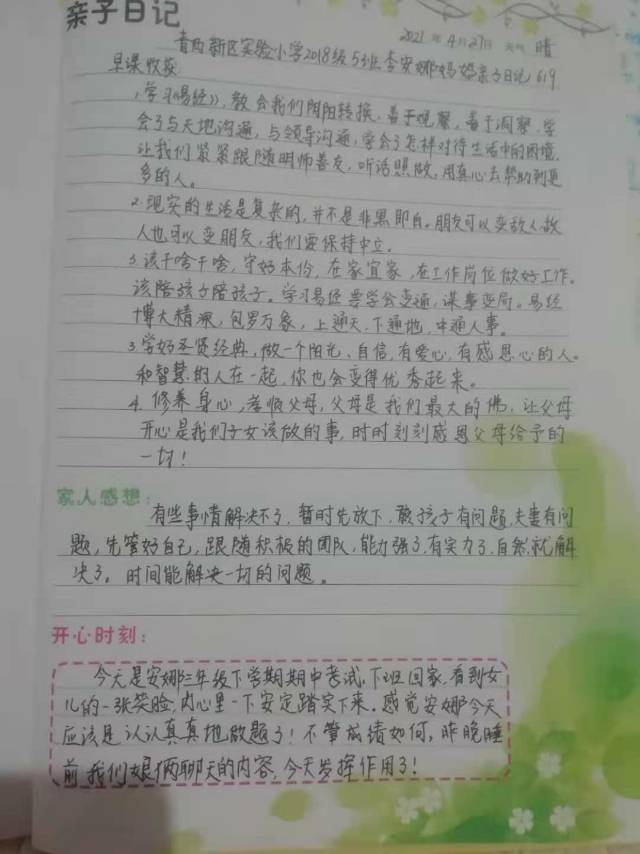 亲子日记
2021年4月27日 天气 晴
青西新区实验小学2018级5班李安娜妈妈亲子日记619
早课收获
1,学习《易经》,教会我们阴阳转换,善于观察,善于洞察,学
会了与天地沟通,与领导沟通,学会了怎样对待生活中的困境,
让我们紧紧跟随明师善友,听话照做,用真心去帮助到更
多的人。
2.现实的生活是复杂的,并不是非黑即白。朋友可以变敌人,敌
人也可以变朋友,我们要保持中立。
3.该干啥干啥,守好本份,在家宜家,在工作岗位做好工作。
该陪孩子陪孩子。学习易经要学会变通,谋事变局。易经
博大精深,包罗万象,上通天,下通地,中通人事。
3.学好圣贤经典,做一个阳光、自信,有爱心,有感恩心的人。
和智慧的人在一起,你也会变得优秀起来。
4.修养身心,孝顺父母,父母是我们最大的佛,让父母
开心是我们子女该做的事,时时刻刻感恩父母给予的
一切!
家人感想:
有些事情解决不了,暂时先放下,孩子有问题,夫妻有问
题,先管好自己,跟随积极的团队,能力强了,有实力了,自然就解
决了。时间能解决一切的问题。
开心时刻:
今天是安娜三年级下学期期中考试,下班回家,看到女
儿的一张笑脸,内心里一下安定踏实下来。感觉安娜今天
应该是认认真真地做题了!不管成绩如何,昨晚睡
前我们娘俩聊天的内容,今天发挥作用了!